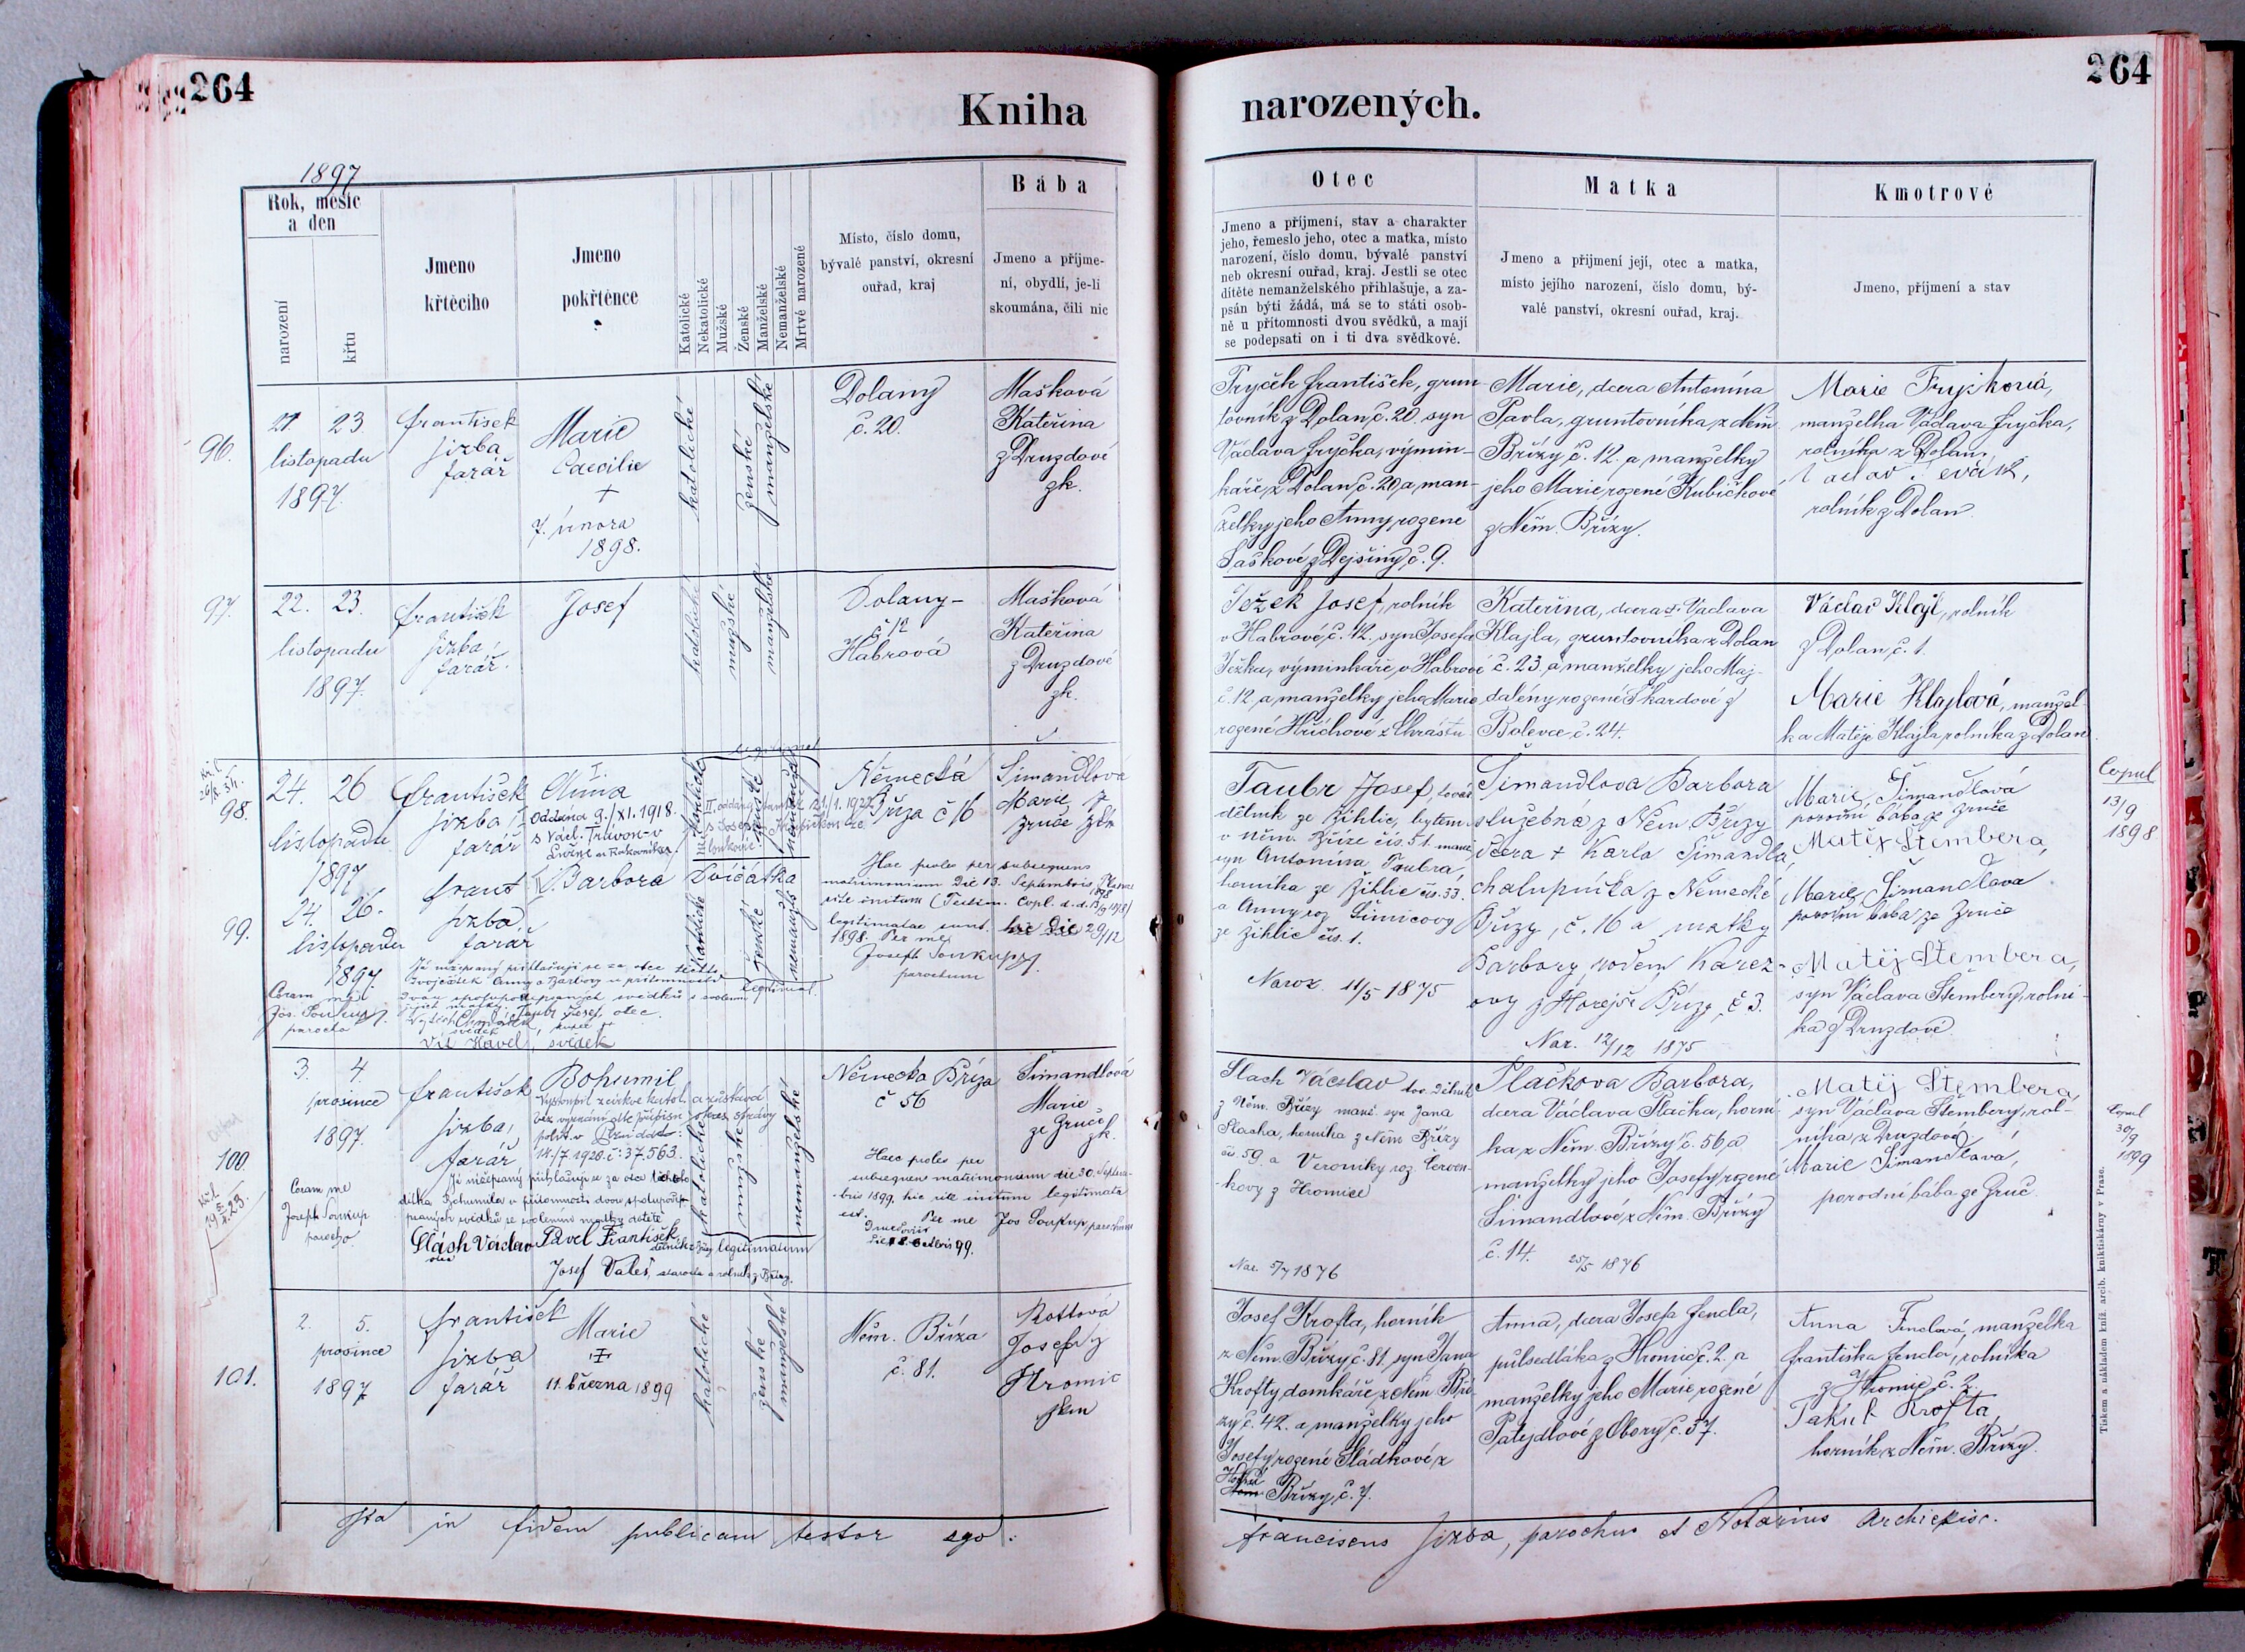 264
264
Kniha
narozených.
1897
Rok, měsíc
a den
narození
křtu
Jmeno
křtěcího
Jmeno
pokřtěnce
Katolické
Nekatolické
Mužské
Ženské
Manželské
Nemanželské
Mrtvě narozené
Místo, číslo domu,
bývalé panství, okresní
ouřad, kraj
Bába
Jmeno a příjme-
ní, obydlí, je-li
skoumána, čili nic
Otec
Jmeno a příjmení, stav a charakter
jeho, řemeslo jeho, otec a matka, místo
narození, číslo domu, bývalé panství
neb okresní ouřad, kraj. Jestli se otec
dítěte nemanželského přihlašuje, a za-
psán býti žádá, má se to státi osob-
ně u přítomnosti dvou svědků, a mají
se podepsati on i ti dva svědkové.
Matka
Jmeno a příjmení její, otec a matka,
místo jejího narození, číslo domu, bý-
valé panství, okresní ouřad, kraj.
Kmotrové
Jmeno, příjmení a stav
96.
21. 23.
listopadu
1897.
František
Jirba
farář
Marie
Caecilie
+
7. února
1898.
katolické
ženské
manželské
Dolany
č. 20.
Mašková
Kateřina
z Druzdové
zk.
Fryček František, grun-
tovník z Dolan č. 20. syn
Václava Fryčka, výmin-
káře z Dolan č. 20, a man-
želky jeho Anny rozené
Saškové z Dejšiny č. 9.
Marie, dcera Antonína
Pavla, gruntovníka z Něm.
Břízy č. 12. a manželky
jeho Marie rozené Kubíčkové
z Něm. Břízy.
Marie Fryčková,
manželka Václava Fryčka,
rolníka z Dolan.
rolník z Dolan.
97.
22. 23.
listopadu
1897.
František
Jirba,
farář.
Josef
katolické
mužské
manželské
Dolany-
č 12
Habrová
Mašková
Kateřina
z Druzdové
zk.
Ježek Josef, rolník
v Habrové, č. 12. syn Josefa
Ježka, výminkáře, v Habrové
č. 12, a manželky jeho Marie
rozené Hříchové z Chrástu
Kateřina, dcera + Václava
Klajla, gruntovníka z Dolan
č. 23. a manželky jeho Maj-
dalény rozené Škardové z
Bolevce, č. 24.
Václav Klajl, rolník
z Dolan, č. 1.
Marie Klajlová, manžel-
ka Matěje Klajla, rolníka z Dolan.
98.
24. 26
listopadu
1897
František
Jirba
farář
I.
Anna
Oddána 9./XI. 1918.
s Václ. Trávon- v
Lužné u Rakovníka
Německá
Bříza č 16
Šimandlová
Marie z
Zruče zk
99.
24. 26.
listopadu
1897.
Frant
Jirba
farář
II. Barbora
Dvíčátka
Katolické
ženské
nemanžels
legitimat.
Haec proles per subsequens
matrimonium die 13. Septembris,
rite initum (Testim. Copl. d. d. 13/9 1898)
legitimatae sunt. hic die 29/12
1898. Per me
Joseph Soukup
parochum
Já nížepsaný přihlašuji se za otce těchto
dvojčátek Anny a Barbory v přítomnosti
dvou spolupodepsaných svědků s svolením
Taubr Josef, otec.
svědek
Vít Havel, svědek
Coram me
Jos. Soukup
parocho
Taubr Josef, továr.
dělník ze Žihlic, bytem
v něm. Bříze čís. 51. manž.
syn Antonína Taubra,
horníka ze Žihlic čís. 33.
a Anny roz Šimicovy
ze Žihlic čís. 1.
Naroz. 11/5 1875
Šimandlova Barbora
služebná z Něm. Břízy
dcera + Karla Šimandla,
chalupníka z Německé
Břízy, č. 16 a matky
Barbory, rozem Karez-
ovy z Hořejší Břízy, č 3.
Nar. 12/12 1875
Marie Šimandlová
porodní bába ze Zruče
Matěj Štembera,
Marie Šimandlová
porodní bába ze Zruče
Matěj Štembera,
syn Václava Štembery, rolní-
ka z Druzdové.
Copul
13/9
1898
100.
3. 4.
prosince
1897.
František
Jirba,
farář
Bohumil
Vystoupil z církve katol. a zůstává
bez vyznání dle přípisu okres. správy
polit. v Plzni ddto:
14./7. 1920. č: 37.563.
Já nížepsaný přihlašuji se za otce tohoto
dítka Bohumila v přítomnosti dvou spolupode-
psaných svědků se svolením matky dítěte
Slách Václav
otec
Pavel František
dělník z Břízy
Josef Valeš, starosta a rolník z Břízy.
Coram me
Joseph Soukup
parocho
katolické
mužské
nemanželské
legitimatum
Německa Bříza
č 56
Šimandlová
Marie
ze Zruče
zk.
Haec proles per
subsequens matrimonium die 30. Septem-
bris 1899. hic rite initum legitimata
est. Per me Jos Soukup parochum
99.
Slach Václav tov. dělník
z Něm. Břízy manž. syn Jana
Slacha, horníka z Něm Břízy
čís 59. a Veroniky roz. Červen-
kovy z Hromice
Nar. 5/7 1876
Plačkova Barbora,
dcera Václava Plačka, horní-
ka z Něm. Břízy č. 56, a
manželky jeho Josefy rozené
Šimandlové, z Něm. Břízy
č. 14. 25/5 1876
Matěj Štembera,
syn Václava Štembery, rol-
níka z Druzdové
Marie Šimandlová,
porodní bába ze Zruč.
Copul
30/9
1899
101.
2. 5.
prosince
1897
František
Jirba
farář
Marie
+
11. března 1899
katolické
ženské
manželské
Něm. Bříza
č. 81.
Rottová
Josefa z
Hromic
zkm
Josef Krofta, horník
z Něm. Břízy, č. 81. syn Jana
Krofty, domkáře, z Něm Bří-
zy č. 42. a manželky jeho
Josefy rozené Sládkové, z
Hořejší
Břízy, č. 7.
Anna, dcera Josefa Fencla,
půlsedláka z Hromic č. 2. a
manželky jeho Marie rozené
Patejdlové z Obory č. 37.
Anna Fenclová, manželka
Františka Fencla, rolníka
z Hromic č. 2.
Jakub Krofta,
horník z Něm. Břízy.
Ita in fidem publicam testor ego:
Franciscus Jirba, parochus et Notarius Archiepisc.
Tiskem a nákladem kníž. arcib. knihtiskárny v Praze.